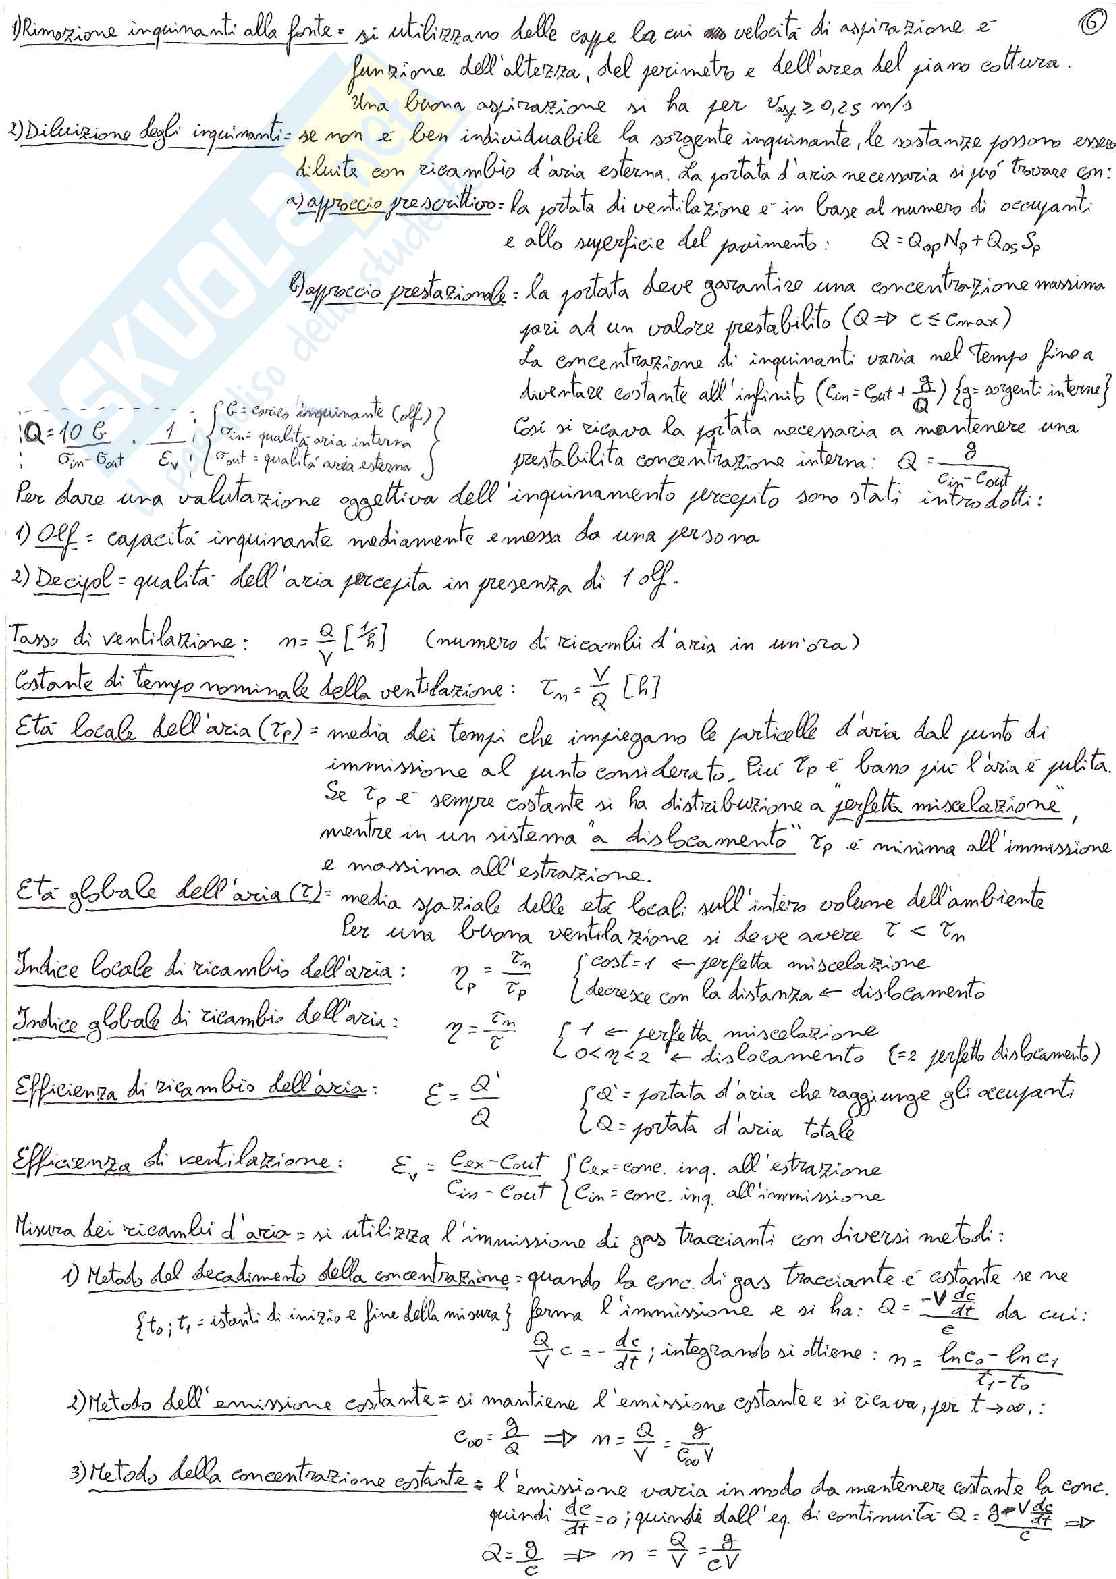 6
1) Rimozione inquinanti alla fonte = si utilizzano delle cappe la cui velocità di aspirazione è
funzione dell'altezza, del perimetro e dell'area del piano cottura.
Una buona aspirazione si ha per v_asp ≥ 0,25 m/s
2) Diluizione degli inquinanti = se non è ben individuabile la sorgente inquinante, le sostanze possono essere
diluite con ricambio d'aria esterna. La portata d'aria necessaria si può trovare con:
a) approccio prescrittivo = la portata di ventilazione è in base al numero di occupanti
e allo superficie del pavimento: Q = Qop Np + Qos Sp
b) approccio prestazionale = la portata deve garantire una concentrazione massima
pari ad un valore prestabilito (Q ⇒ c ≤ cmax)
La concentrazione di inquinanti varia nel tempo fino a
diventare costante all'infinito (cin = cout + g/Q) {g = sorgenti interne}
Così si ricava la portata necessaria a mantenere una
prestabilita concentrazione interna: Q = g/(cin - cout)
Q = 10 G/(σin - σout) · 1/εv {G = carico inquinante (olf)
σin = qualità aria interna
σout = qualità aria esterna}
Per dare una valutazione oggettiva dell'inquinamento percepito sono stati introdotti:
1) Olf = capacità inquinante mediamente emessa da una persona
2) Decipol = qualità dell'aria percepita in presenza di 1 olf.
Tasso di ventilazione: n = Q/V [1/h] (numero di ricambi d'aria in un'ora)
Costante di tempo nominale della ventilazione: τn = V/Q [h]
Età locale dell'aria (τp) = media dei tempi che impiegano le particelle d'aria dal punto di
immissione al punto considerato. Più τp è basso più l'aria è pulita.
Se τp è sempre costante si ha distribuzione a "perfetta miscelazione",
mentre in un sistema "a dislocamento" τp è minima all'immissione
e massima all'estrazione.
Età globale dell'aria (τ) = media spaziale delle età locali sull'intero volume dell'ambiente
Per una buona ventilazione si deve avere τ < τn
Indice locale di ricambio dell'aria: ηp = τn/τp {cost = 1 ← perfetta miscelazione
decresce con la distanza ← dislocamento
Indice globale di ricambio dell'aria: η = τn/τ {1 ← perfetta miscelazione
0 < η < 2 ← dislocamento (=2 perfetto dislocamento)
Efficienza di ricambio dell'aria: ε = Q'/Q {Q' = portata d'aria che raggiunge gli occupanti
Q = portata d'aria totale
Efficienza di ventilazione: εv = (cex - cout)/(cin - cout) {cex = conc. inq. all'estrazione
cin = conc. inq. all'immissione
Misura dei ricambi d'aria = si utilizza l'immissione di gas traccianti con diversi metodi:
1) Metodo del decadimento della concentrazione = quando la conc. di gas tracciante è costante se ne
{t0; t1 = istanti di inizio e fine della misura} ferma l'immissione e si ha: Q = (-V dc/dt)/c da cui:
Q/V c = - dc/dt; integrando si ottiene: n = (ln c0 - ln c1)/(t1 - t0)
2) Metodo dell'emissione costante = si mantiene l'emissione costante e si ricava, per t → ∞,:
c∞ = g/Q ⇒ n = Q/V = g/(c∞ V)
3) Metodo della concentrazione costante = l'emissione varia in modo da mantenere costante la conc.
quindi dc/dt = 0; quindi dall'eq. di continuità Q = (g - V dc/dt)/c ⇒
Q = g/c ⇒ n = Q/V = g/(cV)